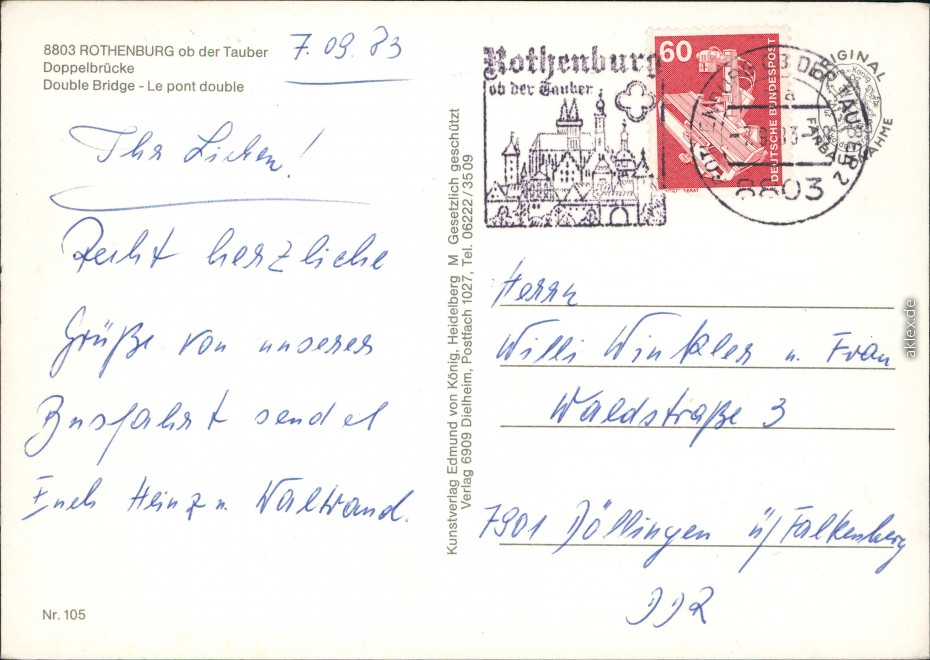 8803 ROTHENBURG ob der Tauber
Doppelbrücke
Double Bridge - Le pont double
7.09.83
Ihr Lieben!
Recht herzliche
Grüße von unserer
Busfahrt sendet
Euch Heinz u. Waltraud.
Nr. 105
Kunstverlag Edmund von König, Heidelberg M Gesetzlich geschützt
Verlag 6909 Dielheim, Postfach 1027, Tel. 06222/3509
Rothenburg
ob der Tauber
60
DEUTSCHE BUNDESPOST
OB DER TAUBER 2
8803
Herrn
Willi Winkler u. Frau
Waldstraße 3
7901 Döllingen ü/Falkenberg
DDR
aklex.de